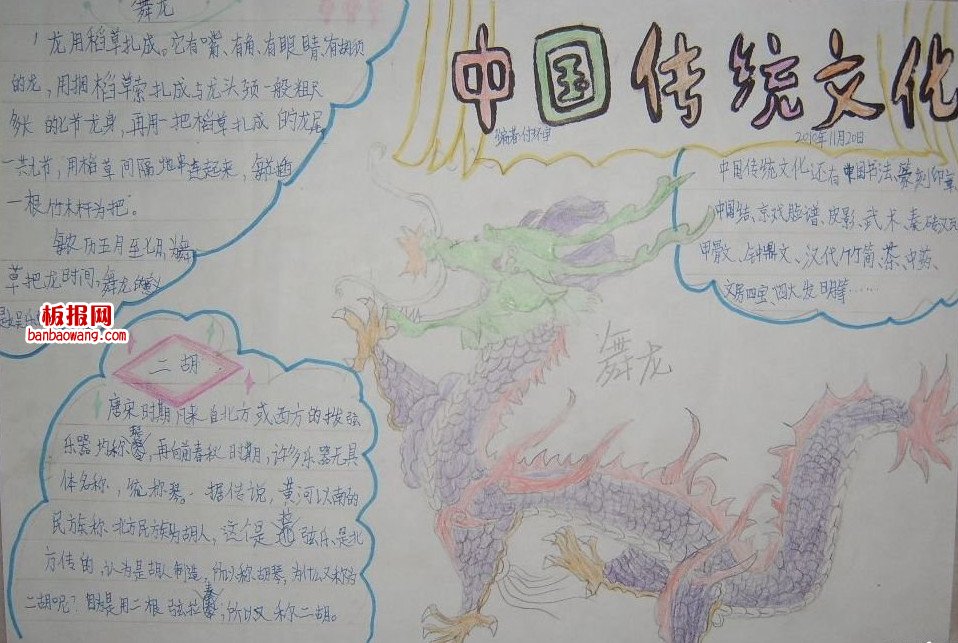 中国传统文化
2010年11月20日
舞龙
龙用稻草扎成。它有嘴、有角、有眼睛、有胡须
的龙，用捆稻草索扎成与龙头颈一般粗
多长的七节龙身，再用一把稻草扎成的龙尾
一共九节，用稻草间隔地串连起来，每
一根竹木杆为把。
每农历五月至七月，舞
草把龙时间，舞龙的
板报网
banbaowang.com
二胡
唐宋时期凡来自北方或西方的拨弦
乐器均称琴，再向前春秋时期，许多乐器无具
体名称，统称琴。据传说，黄河以南的
民族称北方民族为胡人，这个是 弦乐是北
方传的，认为是胡人制造，所以称胡琴，为什么又称为
二胡呢？ 是用二根弦拉奏，所以又称二胡。
中国传统文化还有中国书法、篆刻印章、
中国结、京戏脸谱、皮影、武术、秦砖汉瓦
甲骨文、钟鼎文、汉代竹简、茶、中药、
文房四宝、四大发明等……
舞龙